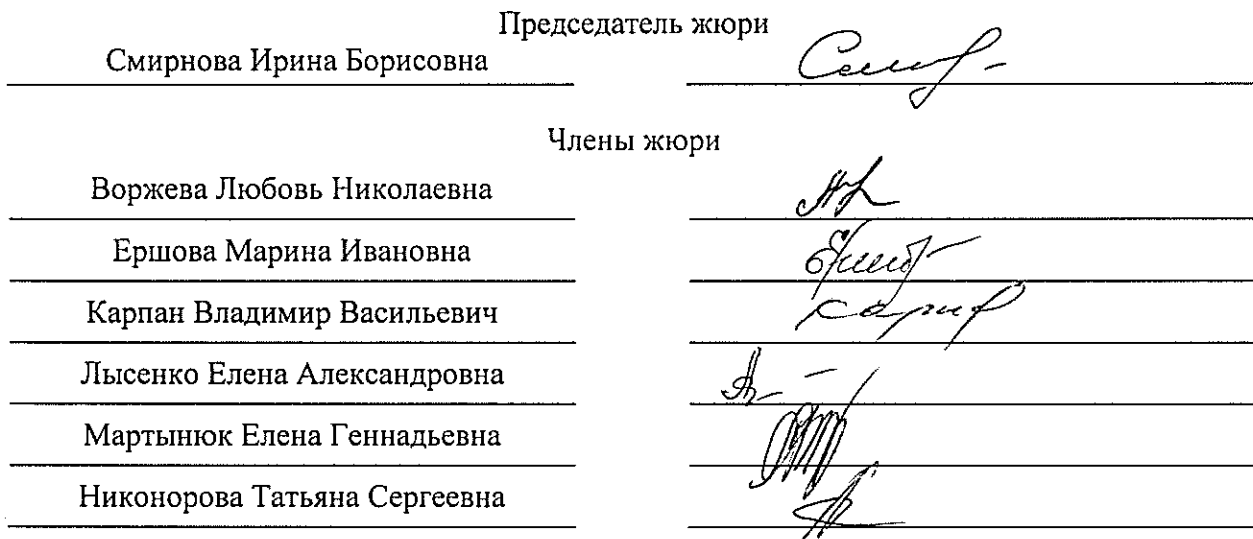 Председатель жюри
Смирнова Ирина Борисовна
Члены жюри
Воржева Любовь Николаевна
Ершова Марина Ивановна
Карпан Владимир Васильевич
Лысенко Елена Александровна
Мартынюк Елена Геннадьевна
Никонорова Татьяна Сергеевна